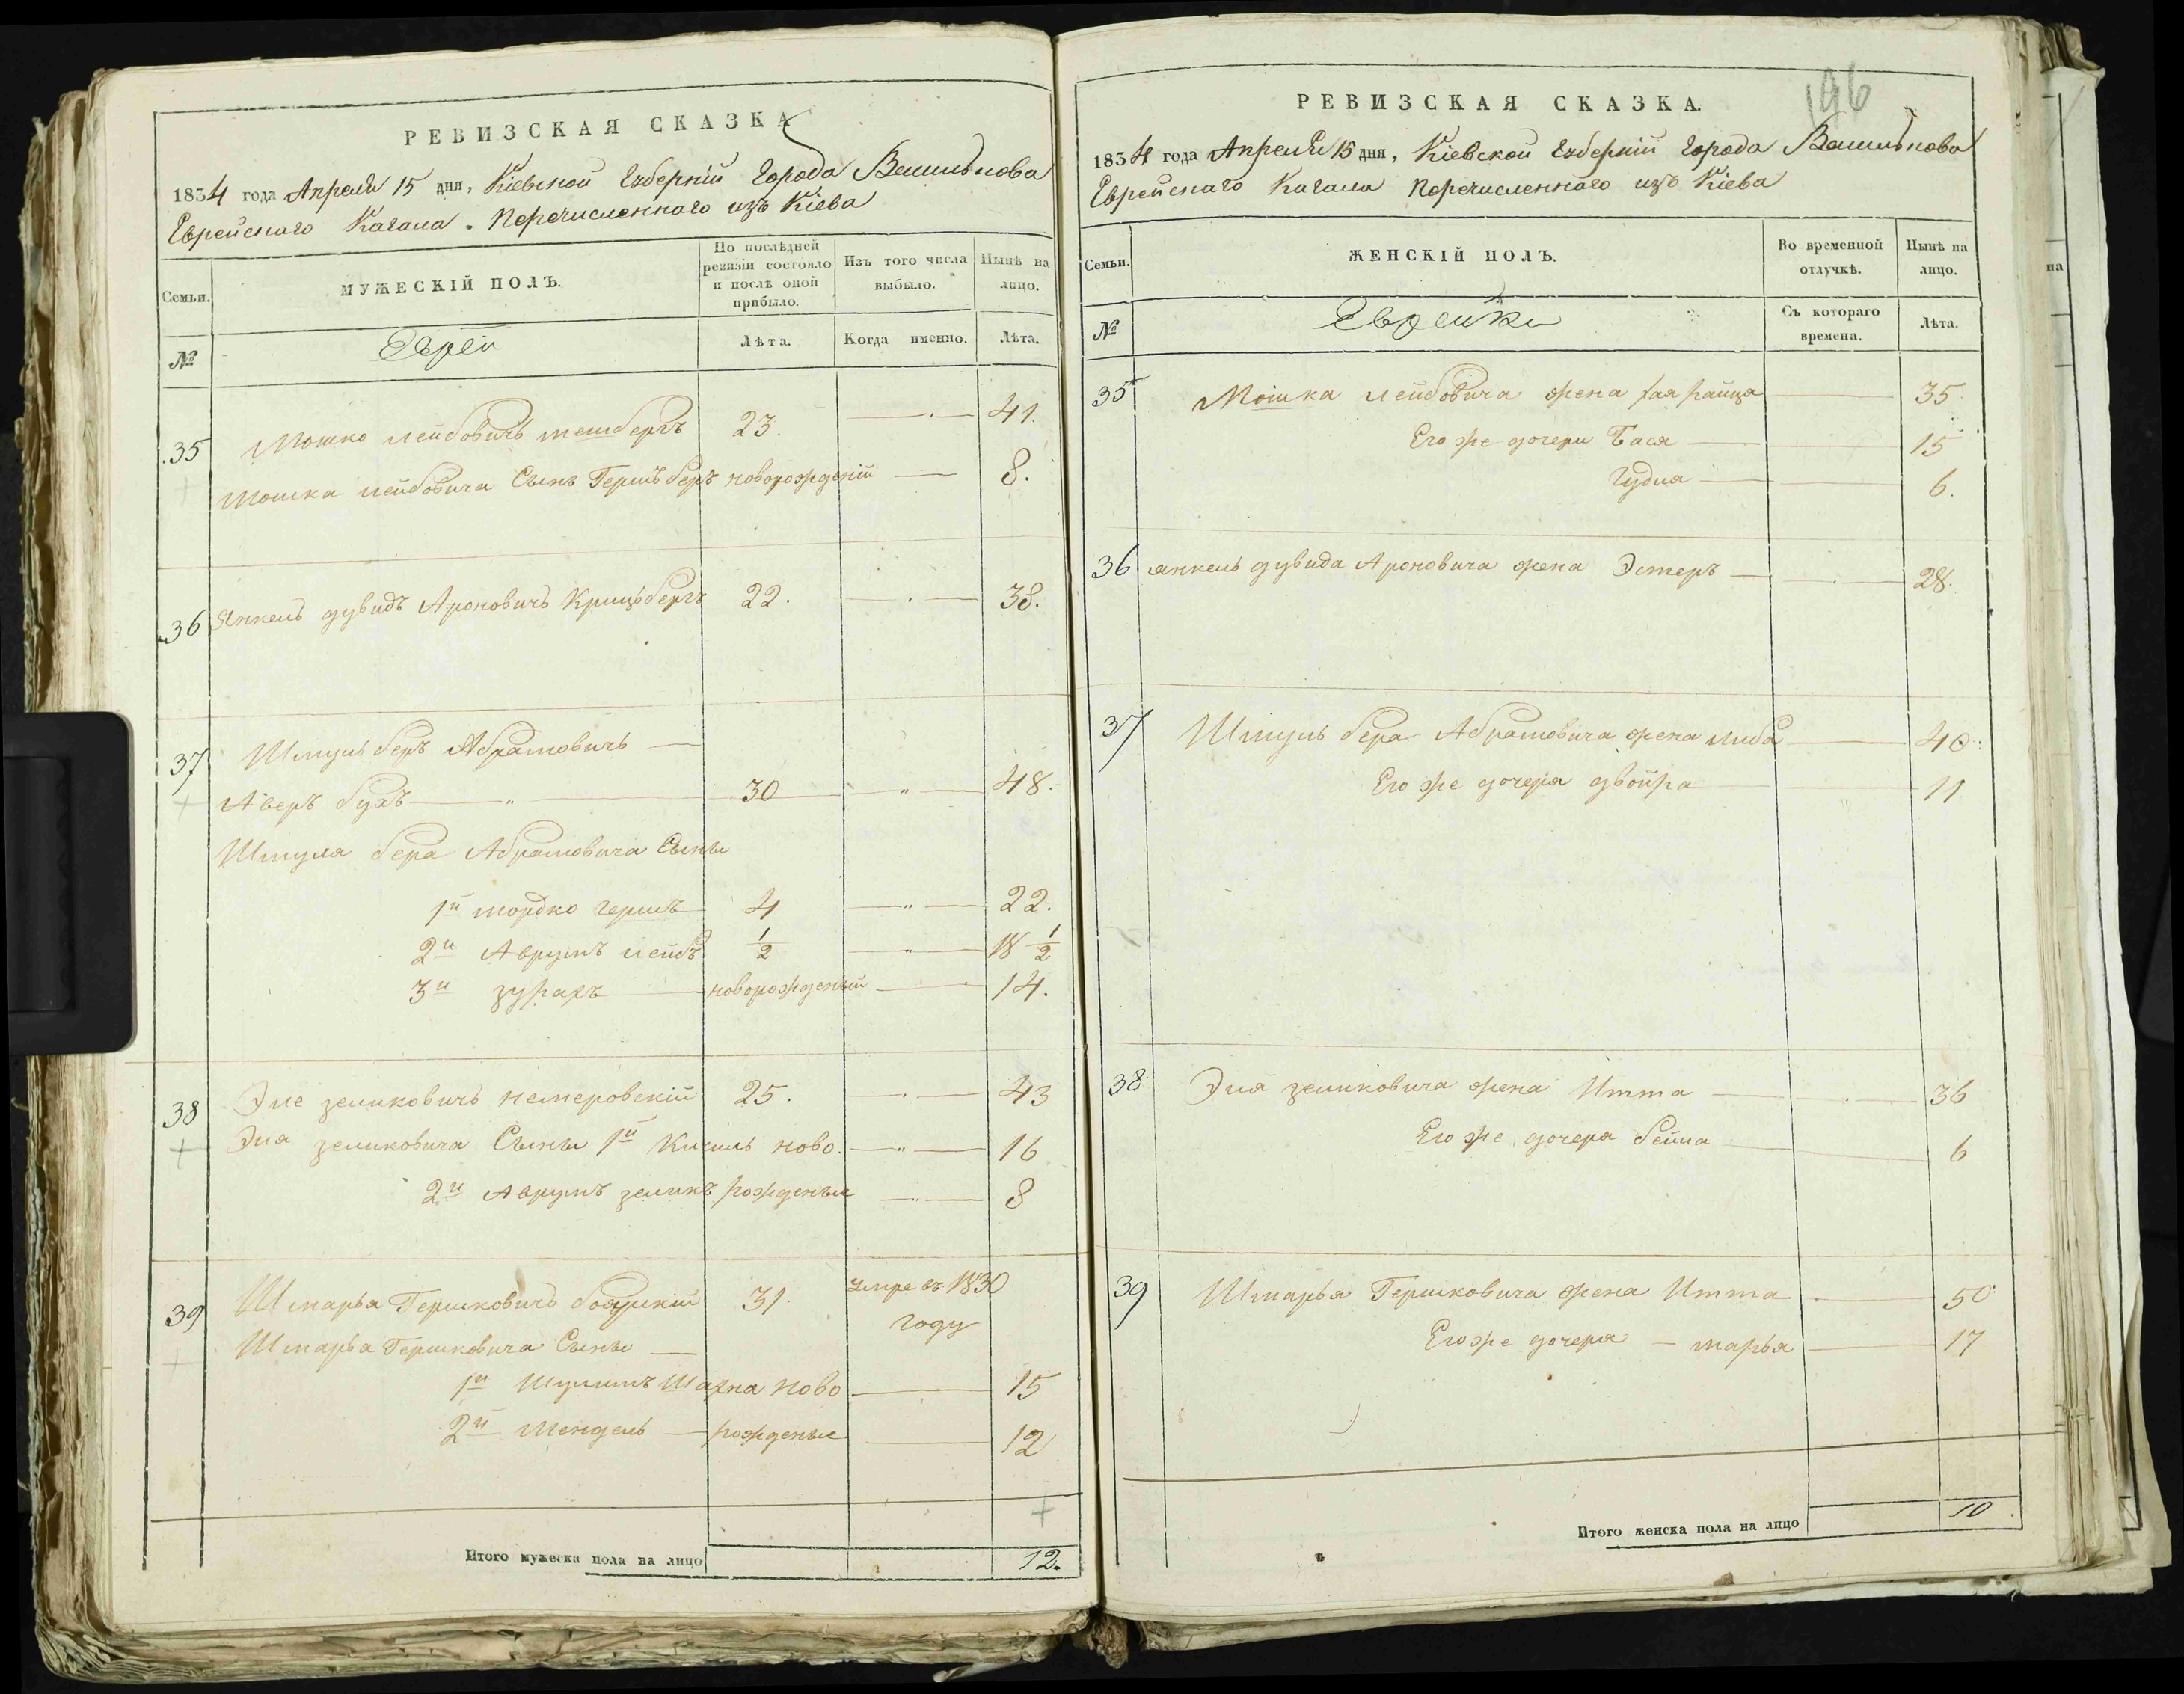 РЕВИЗСКАЯ СКАЗКА
1834 года Апреля 15 дня, Кіевской Губерніи Города Василькова
Еврейскаго Кагала. Перечисленнаго изъ Кіева
Семьи.
МУЖЕСКІЙ ПОЛЪ.
По послѣдней ревизіи состояло и послѣ оной прибыло.
Изъ того числа выбыло.
Нынѣ на лицо.
№
Евреи
Лѣта.
Когда именно.
Лѣта.
35 Мошко Лейбовичъ 23. 41.
Мошка Лейбовича Сынъ Гершъ беръ новорожденій 8.
36 Янкель дувидъ Ароновичъ Крицьбергъ 22. 38.
37 Шмуль беръ Абрамовичъ
Авербухъ 30 48.
Шмуля бера Абрамовича Сыны
1й мордко гершъ 4 22.
2й Аврумъ лейбъ 1/2 18 1/2
3й зурахъ новорожденый 14.
38 Эле зеликовичъ немеровскій 25. 43
Эля зеликовича Сыны 1й Кисиль ново 16
2й Аврумъ зеликъ рожденые 8
39 Шмарья Гершковичъ боярскій 31. умре въ 1830
году
Шмарья Гершковича Сыны
1й Шулимъ Шахна ново 15
2й Мендель рожденые 12
Итого мужеска пола на лицо 12.
196
РЕВИЗСКАЯ СКАЗКА.
1834 года Апреля 15 дня, Кіевской Губерніи Города Василькова
Еврейскаго Кагала Перечисленнаго изъ Кіева
Семьи.
ЖЕНСКІЙ ПОЛЪ.
Во временной отлучкѣ.
Нынѣ на лицо.
№
Еврейки
Съ котораго времена.
Лѣта.
35 Мошка лейбовича жена хая райца 35.
Его же дочери Бася 15
Гудля 6.
36 янкель дувида Ароновича жена Эстеръ 28.
37 Шмуль бера Абрамовича жена либа 40.
Его же дочеря двойра 11
38 Эля зеликовича жена Итта 36
Его же дочеря бейла 6
39 Шмарья Гершковича жена Итта 50
Его же дочеря – марья 17
Итого женска пола на лицо 10
на